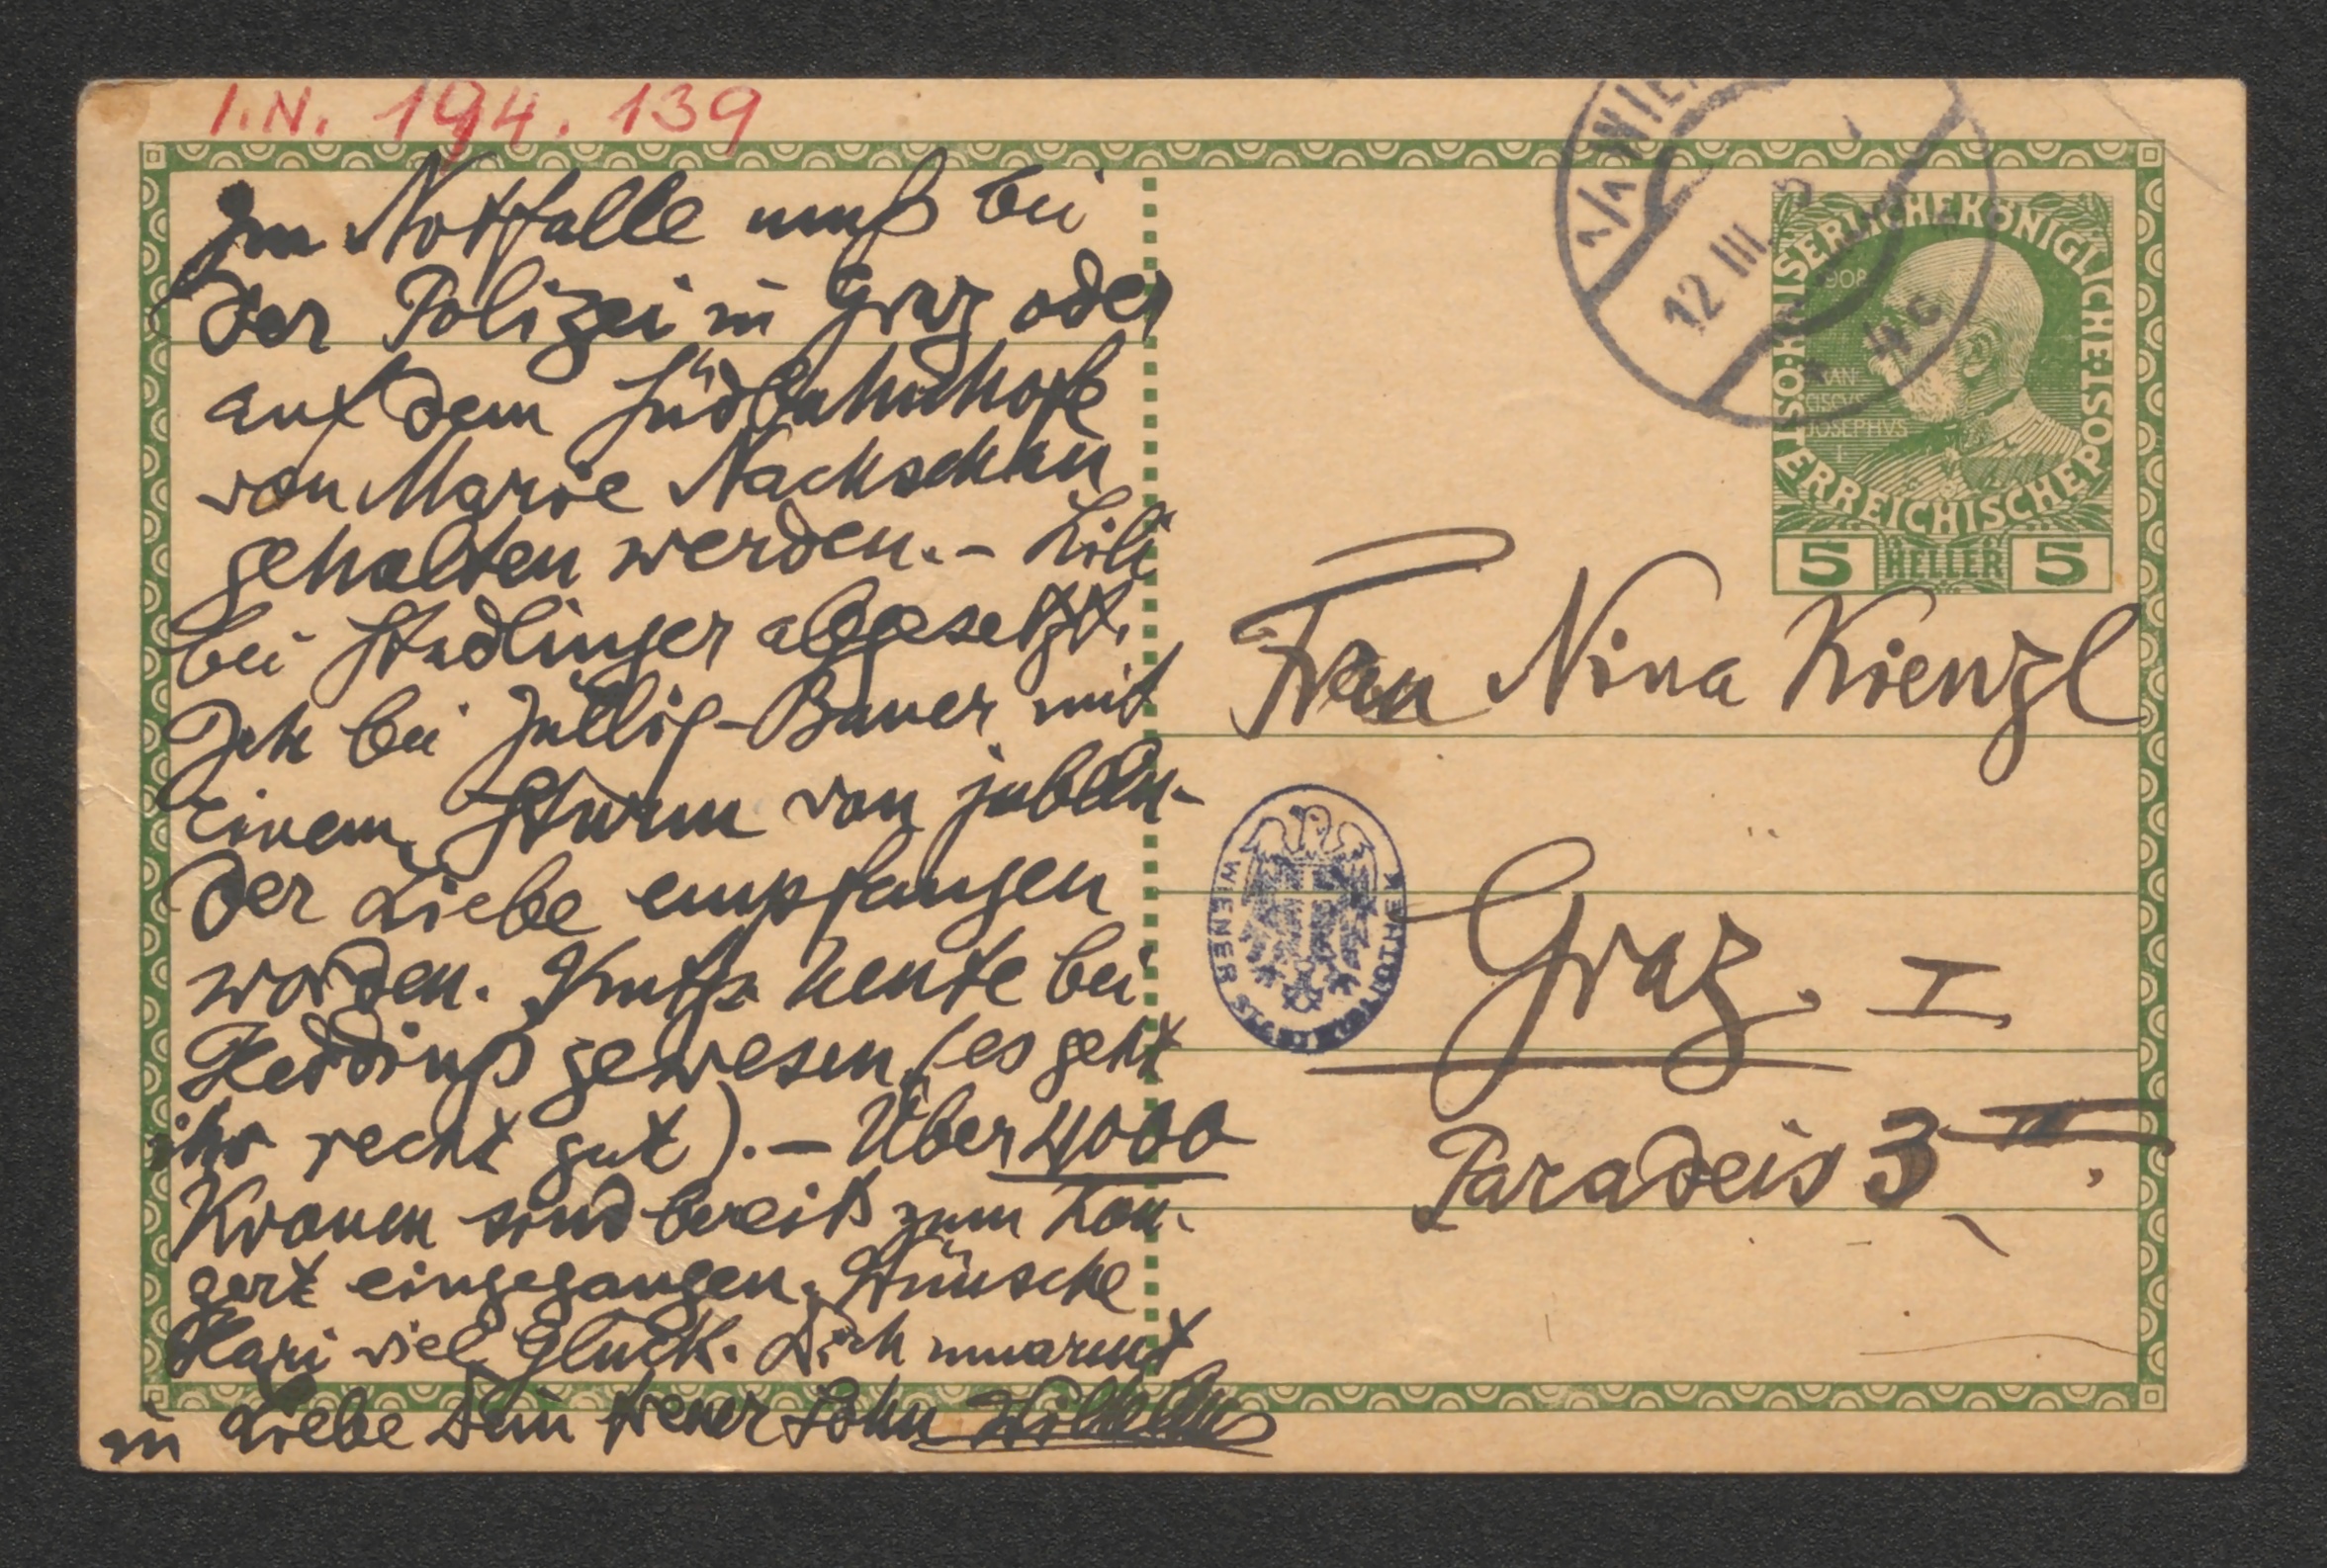 I.N. 194.139
Im Notfalle muß bei
der Polizei in Graz oder
auf dem Südbahnhofe
von Marie Nachschau
gehalten werden. - Lili
bei Stadlinger abgesetzt.
Ich bei Jüllig-Bauer mit
einem Sturm von jubeln-
der Liebe empfangen
worden. heute bei
gewesen (es geht
ihr recht gut). - Über 4000
Kronen sind bereits zum Kon-
zert eingegangen. Wünsche
Hari viel Glück. Dich umarmt
in Liebe Dein treuer Sohn Wilhelm
1/1 WIEN
12 III.
KAISERLICHE KÖNIGLICHE ÖSTERREICHISCHE POST
1908
FRANCISCVS
JOSEPHVS
I
5 HELLER 5
Frau Nina Kienzl
WIENER STADTBIBLIOTHEK
Graz. I
Paradeis 3 II.